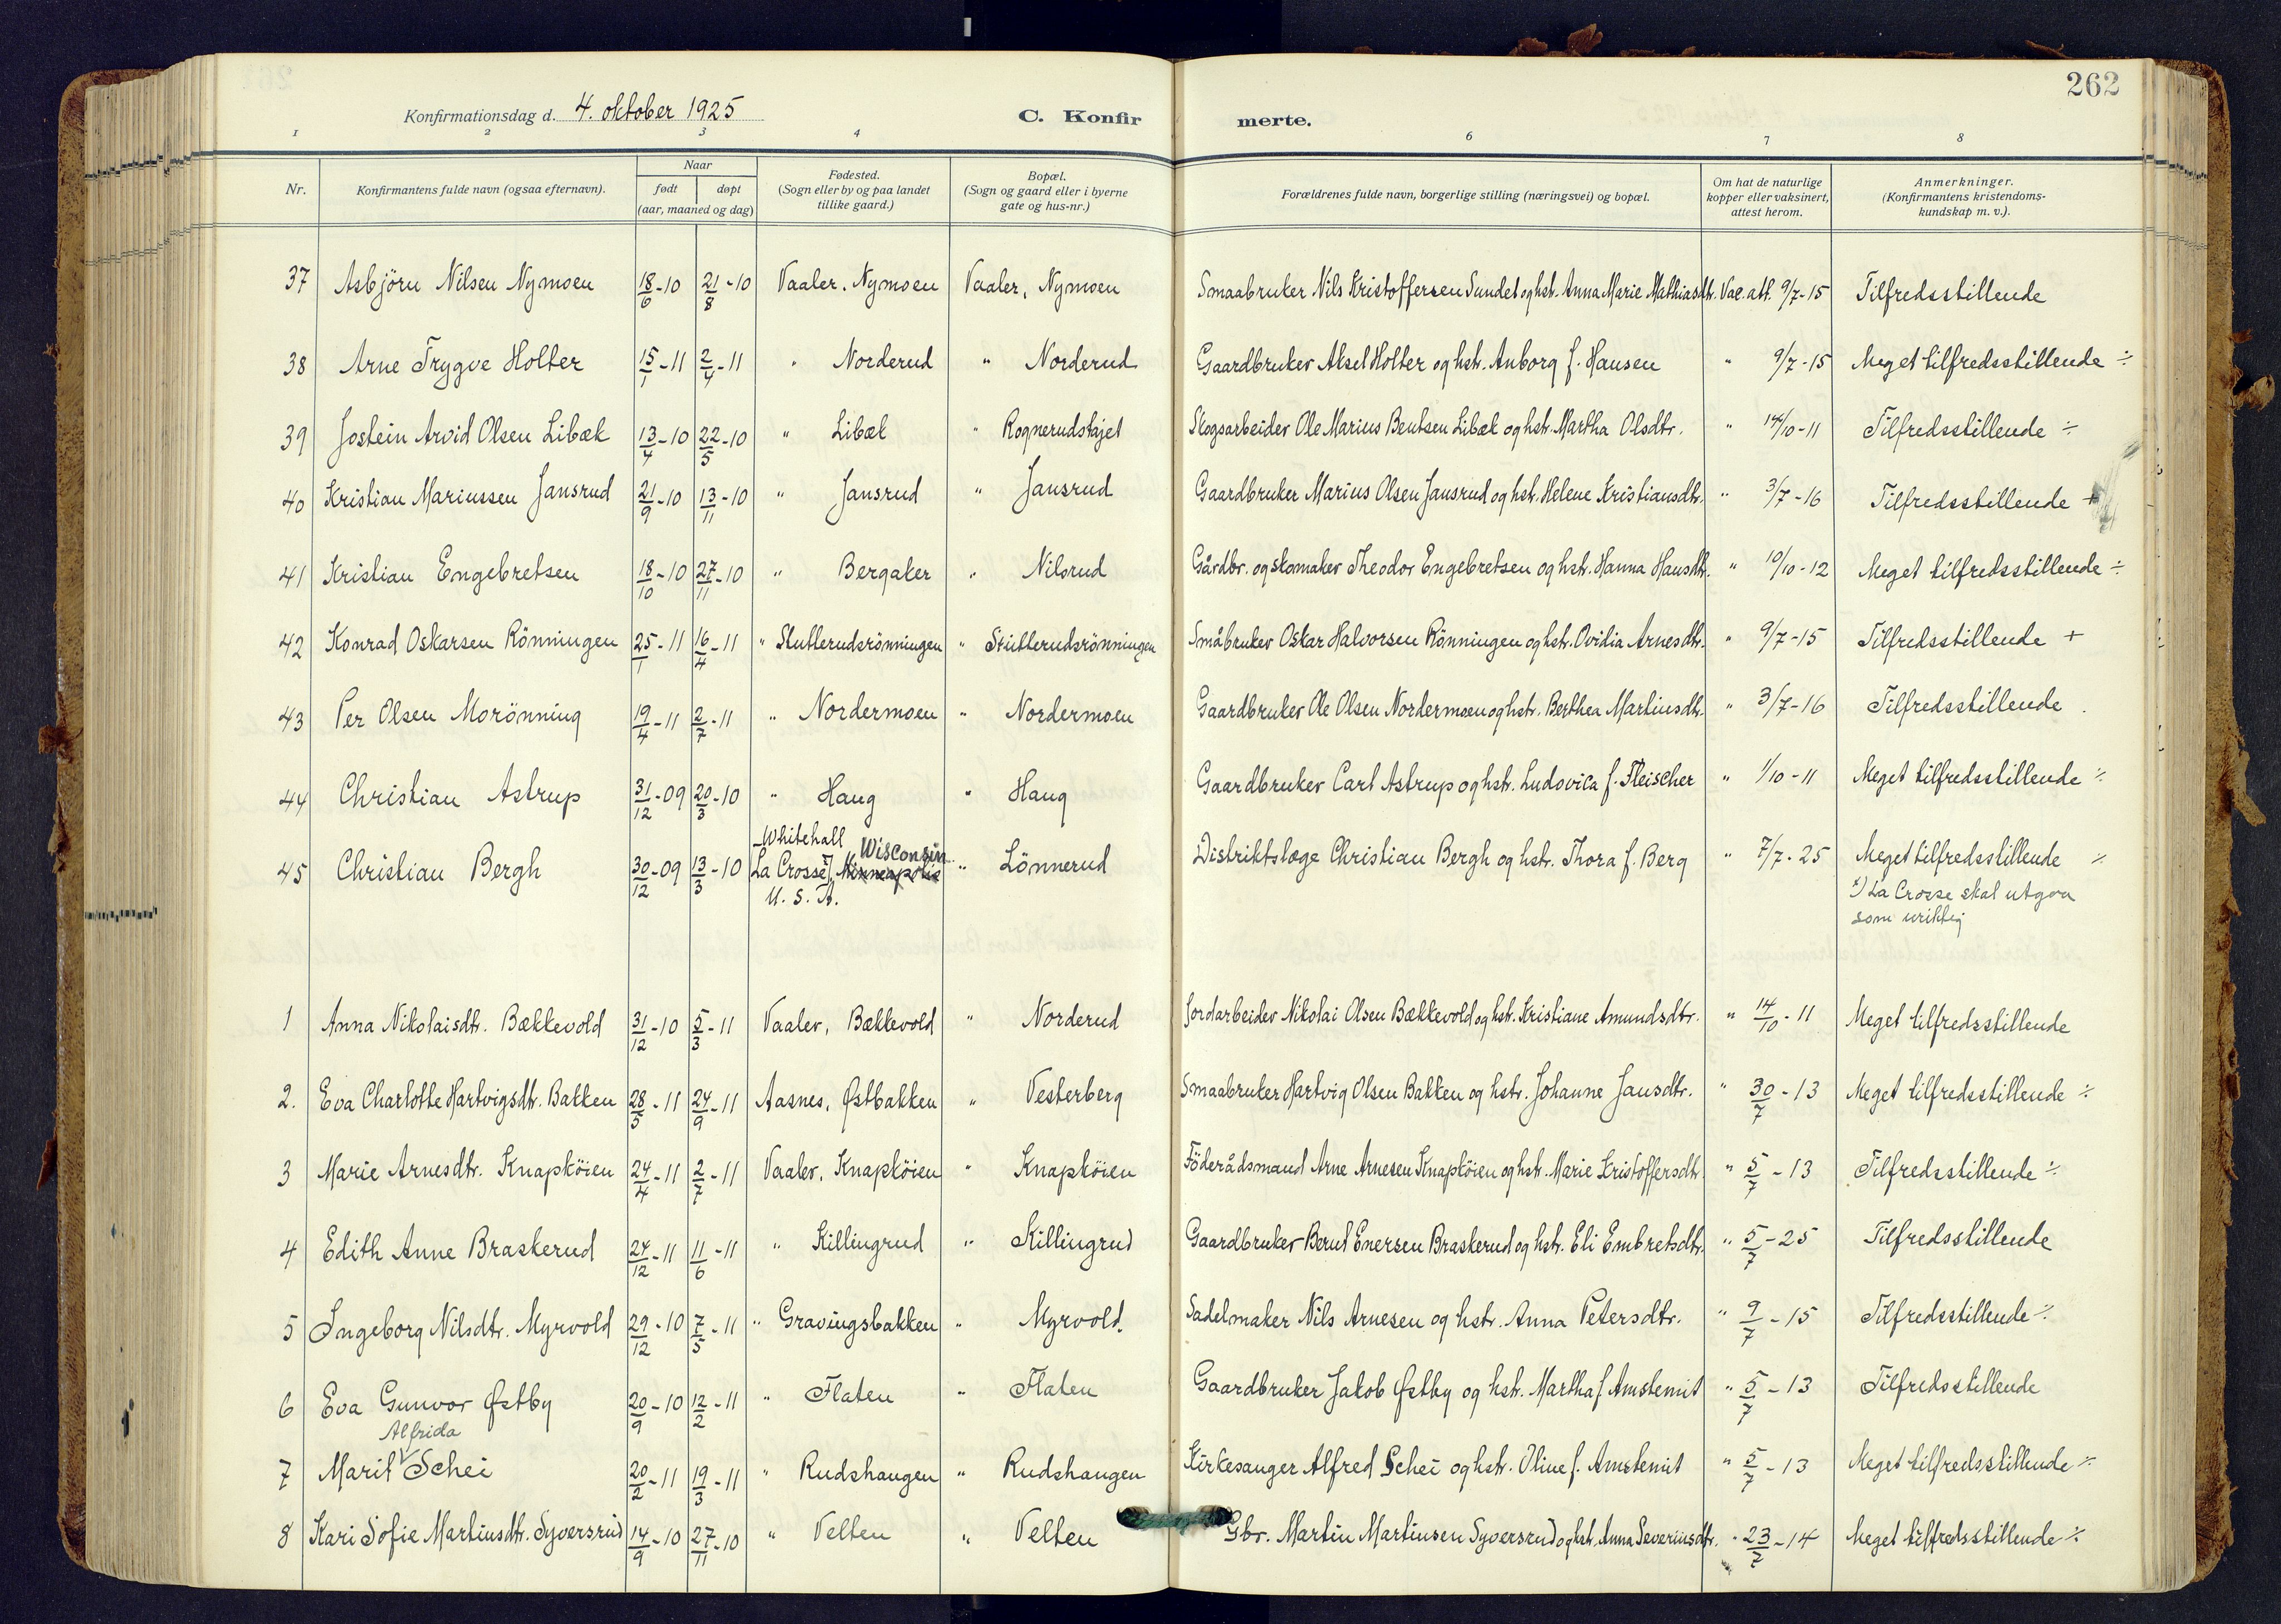 262
Konfirmationsdag d. 4. oktober 1925 C. Konfir merte.
1 2 3 4 6 7 8
Nr. Konfirmantens fulde navn (ogsaa efternavn). Naar født døpt (aar, maaned og dag) Fødested. (Sogn eller by og paa landet tillike gaard.) Bopæl. (Sogn og gaard eller i byerne gate og hus-nr.) Forældrenes fulde navn, borgerlige stilling (næringsvei) og bopæl. Om hat de naturlige kopper eller vaksinert, attest herom. Anmerkninger. (Konfirmantens kristendoms-kundskap m. v.).
37 Asbjörn Nilsen Nymoen 18/6-10 21/8-10 Vaaler, Nymoen Vaaler, Nymoen Smaabruker Nils Kristoffersen Sundet og hst. Anna Marie Mathiasdtr. Vac. att. 9/7-15 Tilfredsstillende
38 Arne Trygve Holter 15/1-11 2/4-11 " Norderud " Norderud Gaardbruker Aksel Holter og hstr. Anborg f. Hansen " 9/7-15 Meget tilfredsstillende ÷
39 Jostein Arvid Olsen Libæk 13/4-10 22/5-10 " Libæk " Rognerudstajet Skogsarbeider Ole Marius Bentsen Libæk og hstr. Martha Olsdtr. " 14/10-11 Tilfredsstillende ÷
40 Kristian Mariussen Jansrud 21/9-10 13/11-10 " Jansrud " Jansrud Gaardbruker Marius Olsen Jansrud og hst. Helene Kristiansdtr. " 3/7-16 Tilfredsstillende +
41 Kristian Engebretsen 18/10-10 27/11-10 " Bergaker " Nilsrud Gårdbr. og skomaker Theodor Engebretsen og hstr. Hanna Hansdtr. " 10/10-12 Meget tilfredsstillende ÷
42 Konrad Oskarsen Rönningen 25/1-11 16/4-11 " Stutterudsrönningen " Stutterudsrönningen Småbruker Oskar Halvorsen Rönningen og hstr. Ovidia Arnesdtr. " 9/7-15 Tilfredsstillende +
43 Per Olsen Morönning 19/4-11 2/7-11 " Nordermoen " Nordermoen Gaardbruker Ole Olsen Nordermoen og hstr. Berthea Martinsdtr. " 3/7-16 Tilfredsstillende
44 Christian Astrup 31/12-09 20/3-10 " Haug " Haug Gaardbruker Carl Astrup og hstr. Ludovica f. Fleischer " 1/10-11 Meget tilfredsstillende ÷
Whitehall Wisconsin
45 Christian Bergh 30/12-09 13/3-10 La Crosse 1), Minneapolis " Lönnerud Distriktslæge Christian Bergh og hstr. Thora f. Berg " 7/7-25 Meget tilfredsstillende ÷
U. S. A. 1) La Crosse skal utgaa
som uriktig
1 Anna Nikolaisdtr. Bækkevold 31/12-10 5/3-11 Vaaler, Bækkevold " Norderud Jordarbeider Nikolai Olsen Bækkevold og hstr. Kristiane Amundsdtr. " 14/10-11 Meget tilfredsstillende
2. Eva Charlotte Hartvigsdtr. Bakken 28/5-11 24/9-11 Aasnes, Østbakken " Vesterberg Smaabruker Hartvig Olsen Bakken og hstr. Johanne Jansdtr. " 30/7-13 Meget tilfredsstillende ÷
3 Marie Arnesdtr. Knapköien 24/4-11 2/7-11 Vaaler, Knapköien " Knapköien Föderådsmand Arne Arnesen Knapköien og hstr. Marie Kristoffersdtr. " 5/7-13 Tilfredsstillende ÷
4 Edith Anne Braskerud 24/12-11 11/6-11 " Killingrud " Killingrud Gaardbruker Bernt Enersen Braskerud og hstr. Eli Embretsdtr. " 5/7-25 Tilfredsstillende
5 Ingeborg Nilsdtr. Myrvold 29/12-10 7/5-11 " Gravingsbakken " Myrvold. Sadelmaker Nils Arnesen og hstr. Anna Petersdtr. " 9/7-15 Tilfredsstillende ÷
6 Eva Gunvor Østby 20/9-10 12/2-11 " Flaten " Flaten Gaardbruker Jakob Østby og hstr. Martha f. Amstemit " 5/7-13 Tilfredsstillende
Alfrida
7 Marit Schei 20/2-11 19/3-11 " Rudshaugen " Rudshaugen Kirkesanger Alfred Schei og hstr. Oline f. Amstemit " 5/7-13 Meget tilfredsstillende ÷
8 Kari Sofie Martinsdtr. Syversrud 14/9-10 27/11-10 " Velten " Velten Gbr. Martin Martinsen Syversrud og hst. Anna Severinsdtr. " 23/7-14 Meget tilfredsstillende ÷